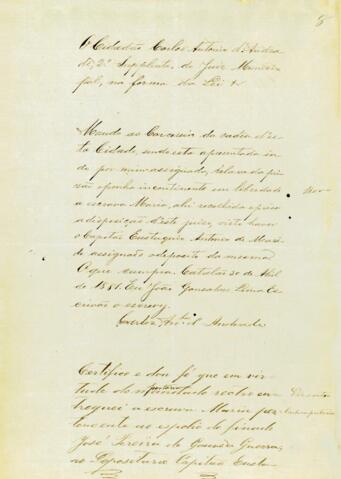 8
O Cidadão Carlos Antonio d'Andra
de, 2º Supplente, do Juiz Munici
pal, na forma da Lei &
Mando ao Carcereiro da cadea d'es
ta Cidade, sendo esta apresentada in
do por mim assignado, relaxe da pri
zão e ponha incontinente em liberdade
a escrava Maria, ahi recolhida
a disposição d'este juizo, visto haver
o Capitão Eustaquio Antonio de
assignado o deposito da mesma
O que cumpra. Catalão 30 de
de 1881. Eu João Gonsalves Lima Es
crivão o escrevy.
Carlos Antº d'Andrade
Certifico e dou fé que em vir
tude do mandado
portaria
treguei a escrava Maria per
tencente ao espolio do finado
José Pereira da Guerra,
ao Depositario Capitão Eusta